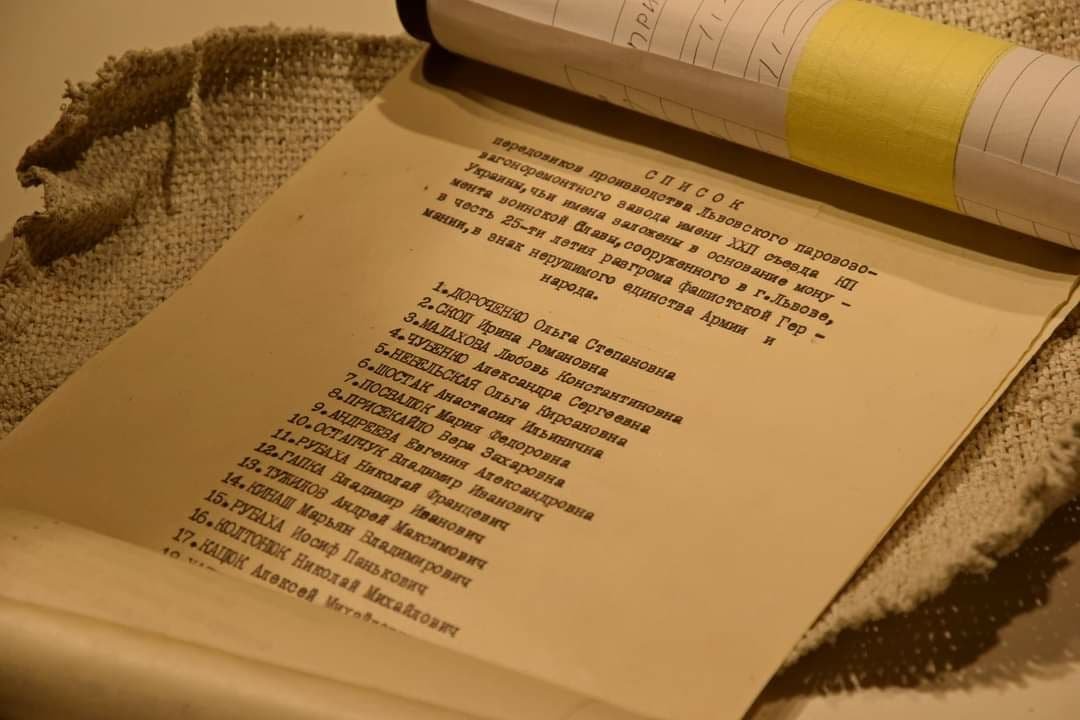 СПИСОК
передовиков производства Львовского паровозо-
вагоноремонтного завода имени XXII съезда КП
Украины, чьи имена заложены в основание мону -
мента воинской Славы, сооруженного в г.Львове,
в честь 25-ти летия разгрома фашистской Гер -
мании, в знак нерушимого единства Армии и
народа.
1.ДОРОЧЕНКО Ольга Степановна
2.СКОП Ирина Романовна
3.МАЛАХОВА Любовь Константиновна
4.ЧУБЕНКО Александра Сергеевна
5.НЕБЕЛЬСКАЯ Ольга Кирсановна
6.ШОСТАК Анастасия Ильинична
7.ПОСВАЛЮК Мария Федоровна
8.ПРИСЕКАЙЛО Вера Захаровна
9.АНДРЕЕВА Евгения Александровна
10.ОСТАПЧУК Владимир Иванович
11.РУБАХА Николай Францевич
12.ГАПКА Владимир Иванович
13.ТУЖИЛОВ Андрей Максимович
14.КИНАШ Марьян Владимирович
15.РУБАХА Иосиф Панькович
16.КОЛТОНЮК Николай Михайлович
17.КАЦЮК Алексей
18.